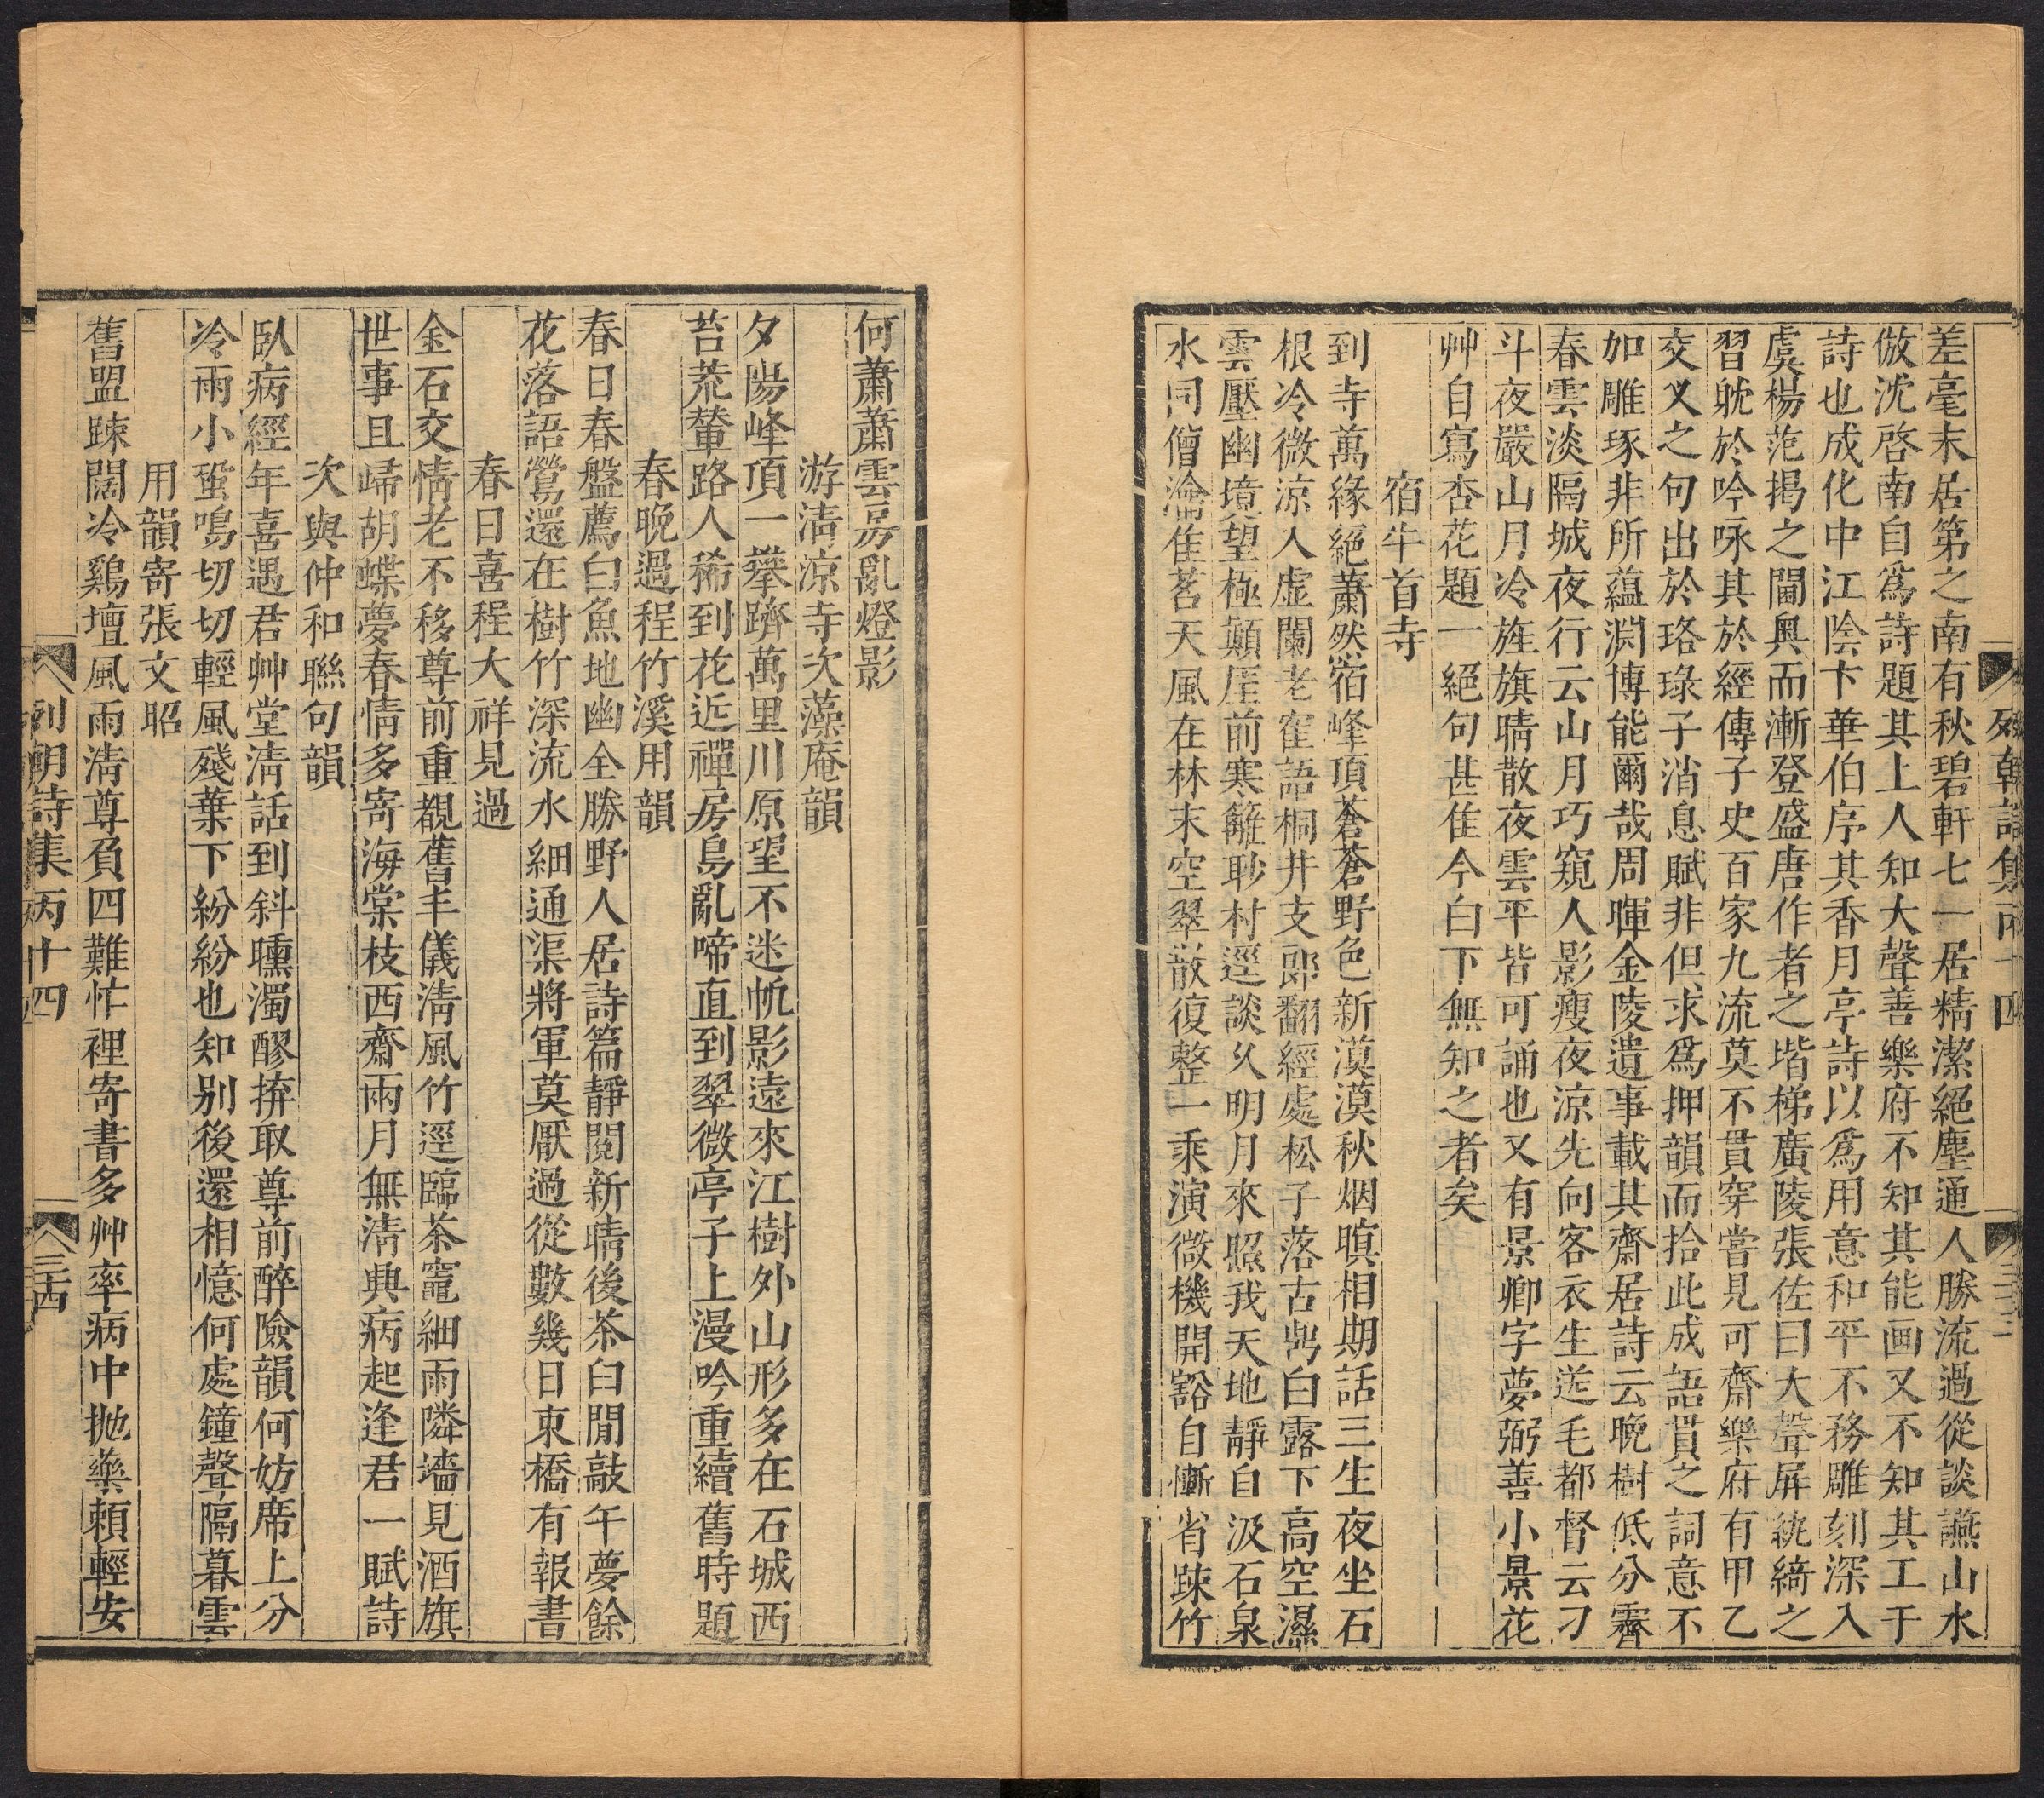 列朝詩集丙十四
三三
差毫末居第之南有秋碧軒七一居精潔絕塵通人勝流過從談讌山水
倣沈啓南自爲詩題其上人知大聲善樂府不知其能画又不知其工于
詩也成化中江陰卞華伯序其香月亭詩以爲用意和平不務雕刻深入
虞楊范揭之閫奥而漸登盛唐作者之堦梯廣陵張佐曰大聲屏紈綺之
習躭於吟咏其於經傳子史百家九流莫不貫穿嘗見可齋樂府有甲乙
交叉之句出於珞琭子消息賦非但求爲押韻而拾此成語貫之詞意不
如雕琢非所蘊淵博能爾哉周暉金陵遺事載其齋居詩云晚樹低分霽
春雲淡隔城夜行云山月巧窺人影瘦夜涼先向客衣生送毛都督云刁
斗夜嚴山月冷旌旗晴散夜雲平皆可誦也又有景卿字夢弼善小景花
艸自寫杏花題一絕句甚佳今白下無知之者矣
宿牛首寺
到寺萬緣絕蕭然宿峰頂蒼蒼野色新漠漠秋烟暝相期話三生夜坐石
根冷微涼入虚闌老寉語桐井支郎翻經處松子落古𡶶白露下高空濕
雲壓幽境望極顛厓前寒籬耿村逕談久明月來照我天地靜自汲石泉
水同僧瀹佳茗天風在林末空翠散復整一乘演微機開豁自慚省踈竹
何蕭蕭雲房亂燈影
游淸涼寺次藻庵韻
夕陽峰頂一攀躋萬里川原望不迷帆影遠來江樹外山形多在石城西
苔荒輦路人稀到花近禪房鳥亂啼直到翠微亭子上漫吟重續舊時題
春晚過程竹溪用韻
春日春盤薦白魚地幽全勝野人居詩篇靜閱新晴後茶臼閒敲午夢餘
花落語鶯還在樹竹深流水細通渠將軍莫厭過從數幾日東橋有報書
春日喜程大祥見過
金石交情老不移尊前重覩舊丰儀淸風竹逕臨茶竈細雨隣墻見酒旗
世事且歸胡蝶夢春情多寄海棠枝西齋雨月無淸興病起逢君一賦詩
次與仲和聯句韻
臥病經年喜遇君艸堂淸話到斜曛濁醪拚取尊前醉險韻何妨席上分
冷雨小蛩鳴切切輕風殘葉下紛紛也知别後還相憶何處鐘聲隔暮雲
用韻寄張文昭
舊盟踈闊冷鷄壇風雨淸尊負四難忙裡寄書多艸率病中抛藥頼輕安
列朝詩集丙十四
三四